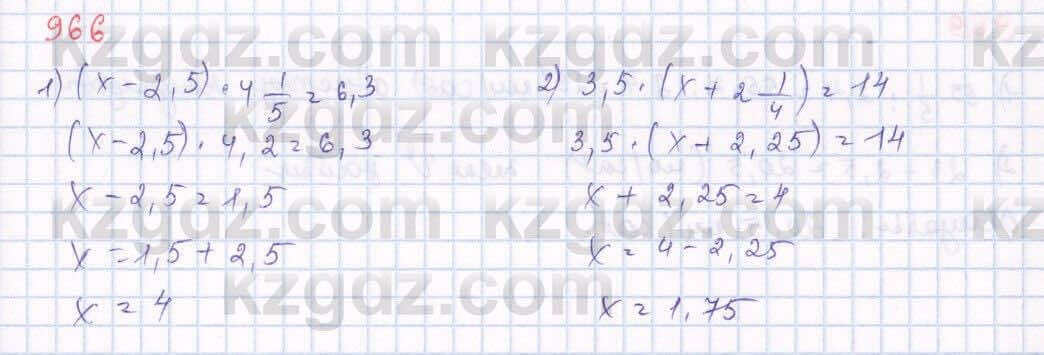 966
1) (x-2,5)·4 1/5 = 6,3
(x-2,5)·4,2=6,3
x-2,5=1,5
x=1,5+2,5
x=4
2) 3,5·(x+2 1/4)=14
3,5·(x+2,25)=14
x+2,25=4
x=4-2,25
x=1,75
kzgdz.com
kzgdz.com
kzgdz.com
kzgdz.com
kzgdz.com